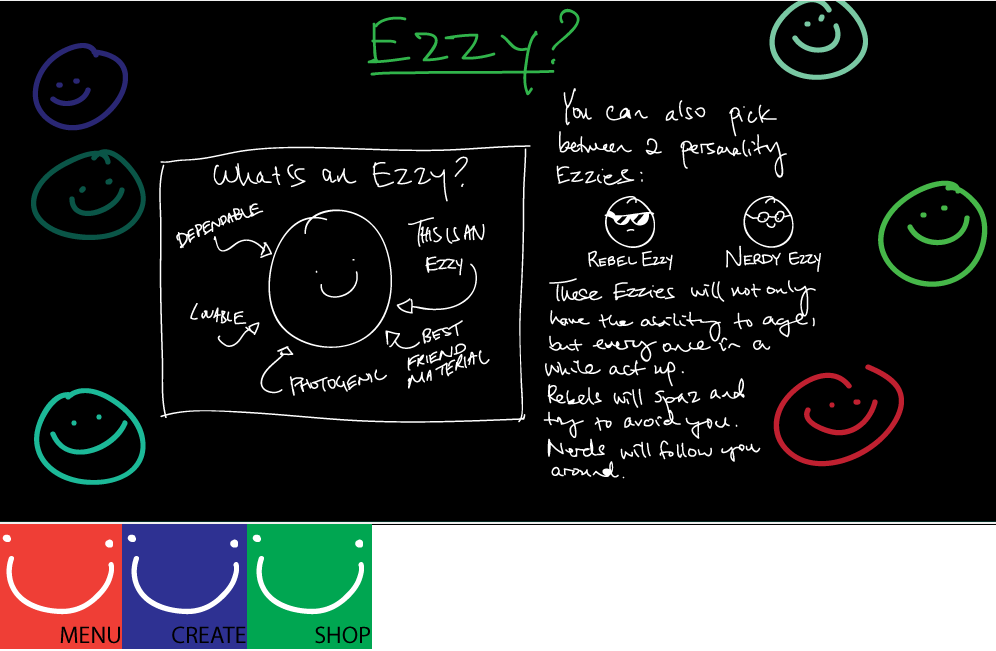 Ezzy?
What's an Ezzy?
DEPENDABLE
THIS IS AN
EZZY
LOVABLE
BEST
FRIEND
MATERIAL
PHOTOGENIC
You can also pick
between 2 personality
Ezzies:
REBEL EZZY
NERDY EZZY
These Ezzies will not only
have the ability to age,
but every once in a
while act up.
Rebels will spaz and
try to avoid you.
Nerds will follow you
around.
MENU
CREATE
SHOP